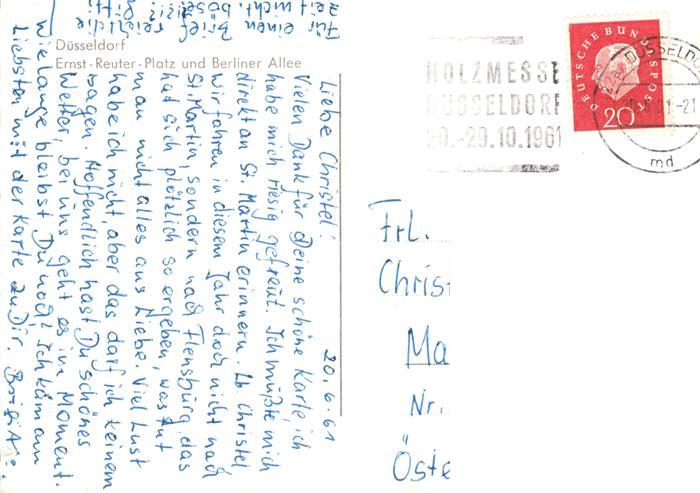 Düsseldorf
Ernst-Reuter-Platz und Berliner Allee
20.6.61
Liebe Christel!
Vielen Dank für Deine schöne Karte, ich
habe mich riesig gefreut. Ich mußte mich
direkt an St. Martin erinnern. Lb. Christel
wir fahren in diesem Jahr doch nicht nach
St. Martin, sondern nach Flensburg, das
hat sich plötzlich so ergeben, was tut
man nicht alles aus Liebe. Viel Lust
habe ich nicht, aber das darf ich keinem
sagen. Hoffentlich hast Du schönes
Wetter, bei uns geht es im Moment.
Wie lange bleibst Du noch? Ich käm am
Liebsten mit der Karte zu Dir. Brigitte.
Für einen Brief reicht die
Zeit nicht, böse?
HOLZMESSE
DÜSSELDORF
20.-29.10.1961
DÜSSELDO
61-21
md
DEUTSCHE BUNDESPOST
20
Frl.
Chris
Ma
Nr.
Öste